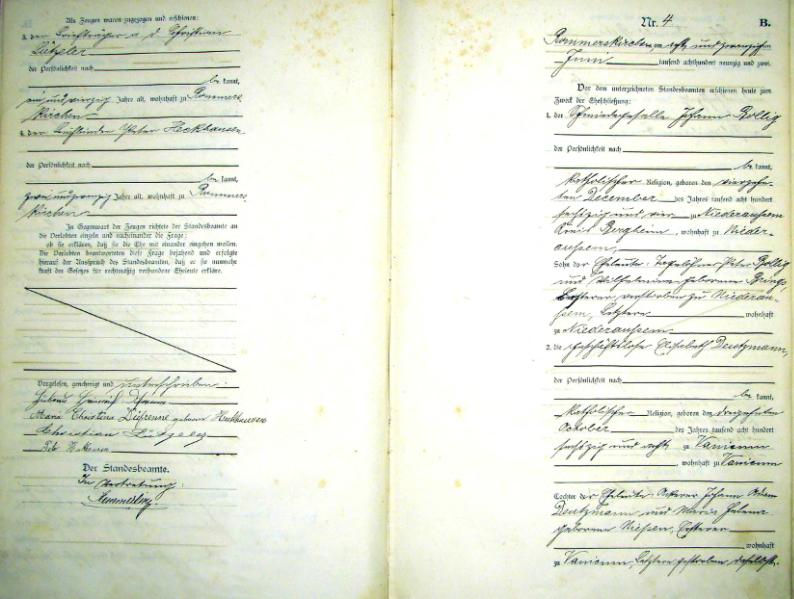 Als Zeugen waren zugezogen und erschienen:
3. der Briefträger a. d. Christian
Lützeler
der Persönlichkeit nach
be kannt,
ein und vierzig Jahre alt, wohnhaft zu Rommers-
kirchen
4. der Peter Heckhausen
der Persönlichkeit nach
be kannt,
zwei und zwanzig Jahre alt, wohnhaft zu Rommers-
kirchen
In Gegenwart der Zeugen richtete der Standesbeamte an
die Verlobten einzeln und nacheinander die Frage:
ob sie erklären, daß sie die Ehe mit einander eingehen wollen.
Die Verlobten beantworteten diese Frage bejahend und erfolgte
hierauf der Ausspruch des Standesbeamten, daß er sie nunmehr
kraft des Gesetzes für rechtmäßig verbundene Eheleute erkläre.
Vorgelesen, genehmigt und unterschrieben:
Heinrich
Anna Christina geborene Heckhausen
Christian Lützeler
Der Standesbeamte.
In Vertretung:
Hemmerling
Nr. 4 B.
Rommerskirchen am und zwanzigsten
Juni tausend achthundert neunzig und zwei
Vor dem unterzeichneten Standesbeamten erschienen heute zum
Zweck der Eheschließung:
1. der Schmiedegeselle Johann Bollig
der Persönlichkeit nach
be kannt,
katholischer Religion, geboren den vierzehn-
ten December des Jahres tausend acht hundert
sechszig und vier zu Niederaussem
Kreis Bergheim, wohnhaft zu Nieder-
aussem,
Sohn der Eheleute: Tagelöhner Peter Bollig
und Wilhelmina geborene
verstorben zu Niederaus-
sem, Letztere wohnhaft
zu Niederaussem
2. die geschäftslose Elisabeth Deutzmann,
der Persönlichkeit nach
be kannt,
katholischer Religion, geboren den dreizehnten
October des Jahres tausend acht hundert
sechszig und zu Vanikum
, wohnhaft zu Vanikum
Tochter der Eheleute: Ackerer Johann Adam
Deutzmann und Maria Helena
geborene Niessen, Ersterer
wohnhaft
zu Vanikum, Letztere verstorben daselbst.